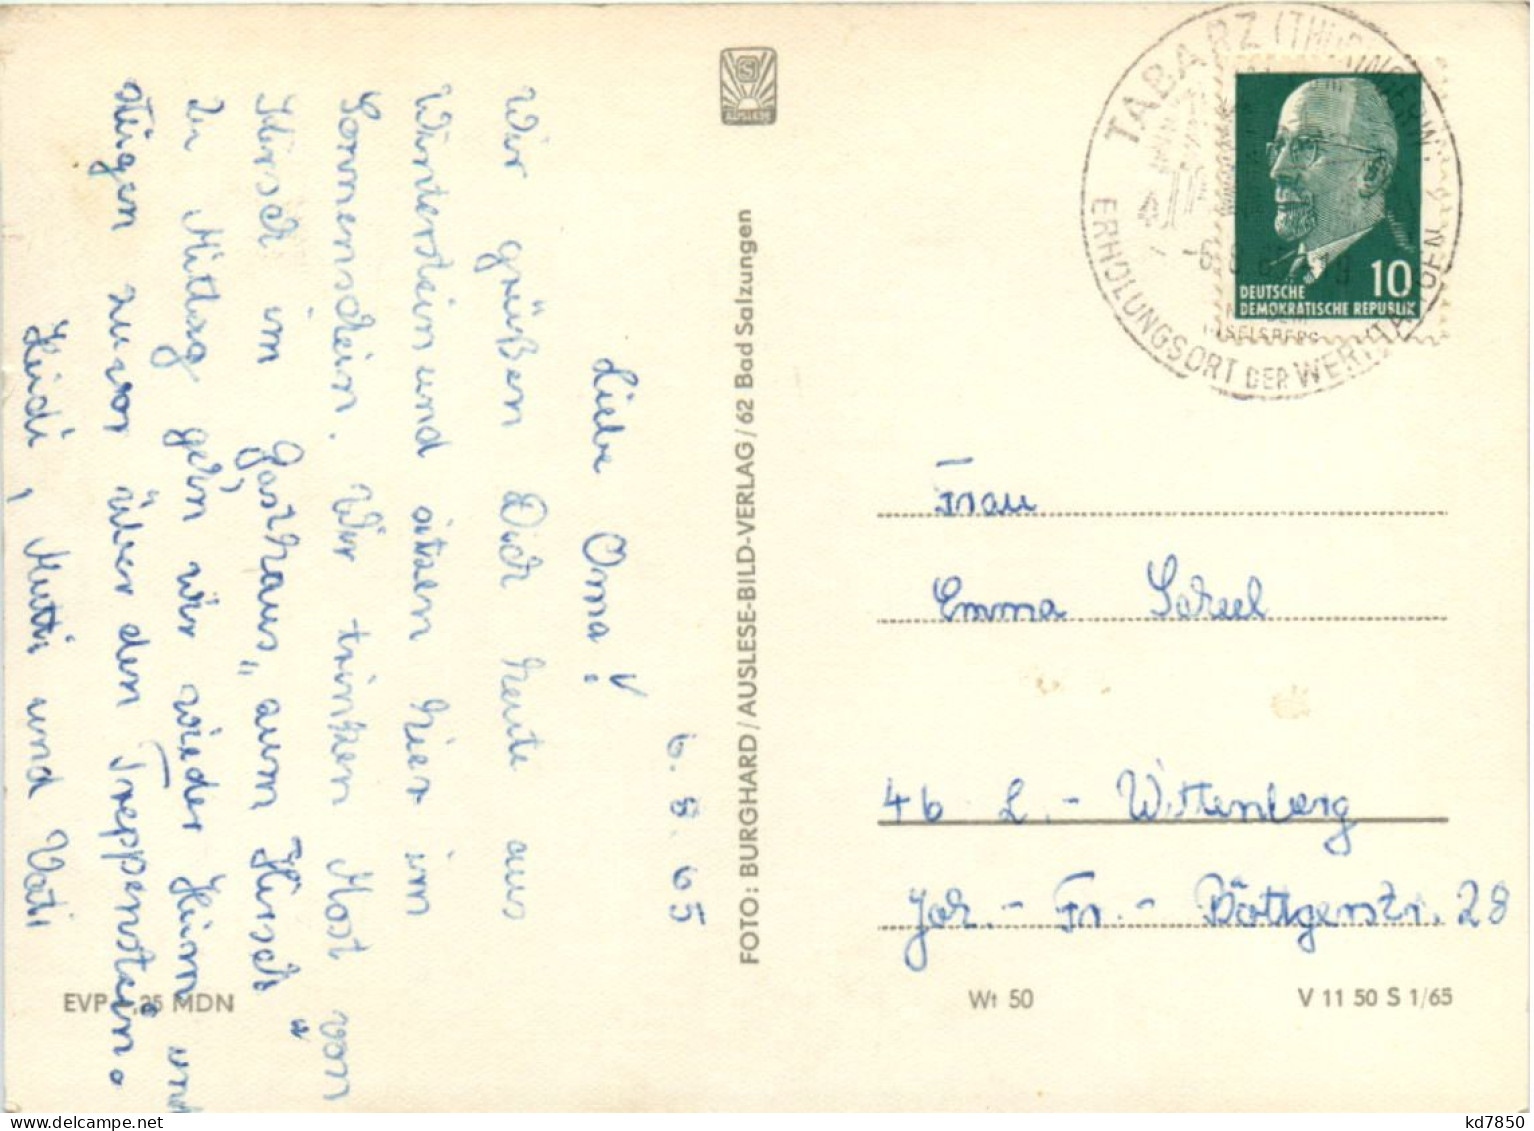 6.8.65
Liebe Oma!
Wir grüßen Dich heute aus
Winterstein und sitzen hier im
Sonnenschein. Wir trinken Most von
Kirsch im Gasthaus „zum Hirsch“
Zu Mittag gehn wir wieder Heim und
steigen zuvor über den Treppenstein.
Heidi, Mutti und Vati
EVP -,25 MDN
AUSLESE
FOTO: BURGHARD/AUSLESE-BILD-VERLAG/62 Bad Salzungen
TABARZ (THÜRINGERW.)
ERHOLUNGSORT DER WERKTÄTIGEN
INSELSBERG
10
DEUTSCHE
DEMOKRATISCHE REPUBLIK
Frau
Emma Scheel
46 L.-Wittenberg
Joh.-Fr.-Böttgerstr. 28
Wt 50
V 11 50 S 1/65
kd7850
www.delcampe.net